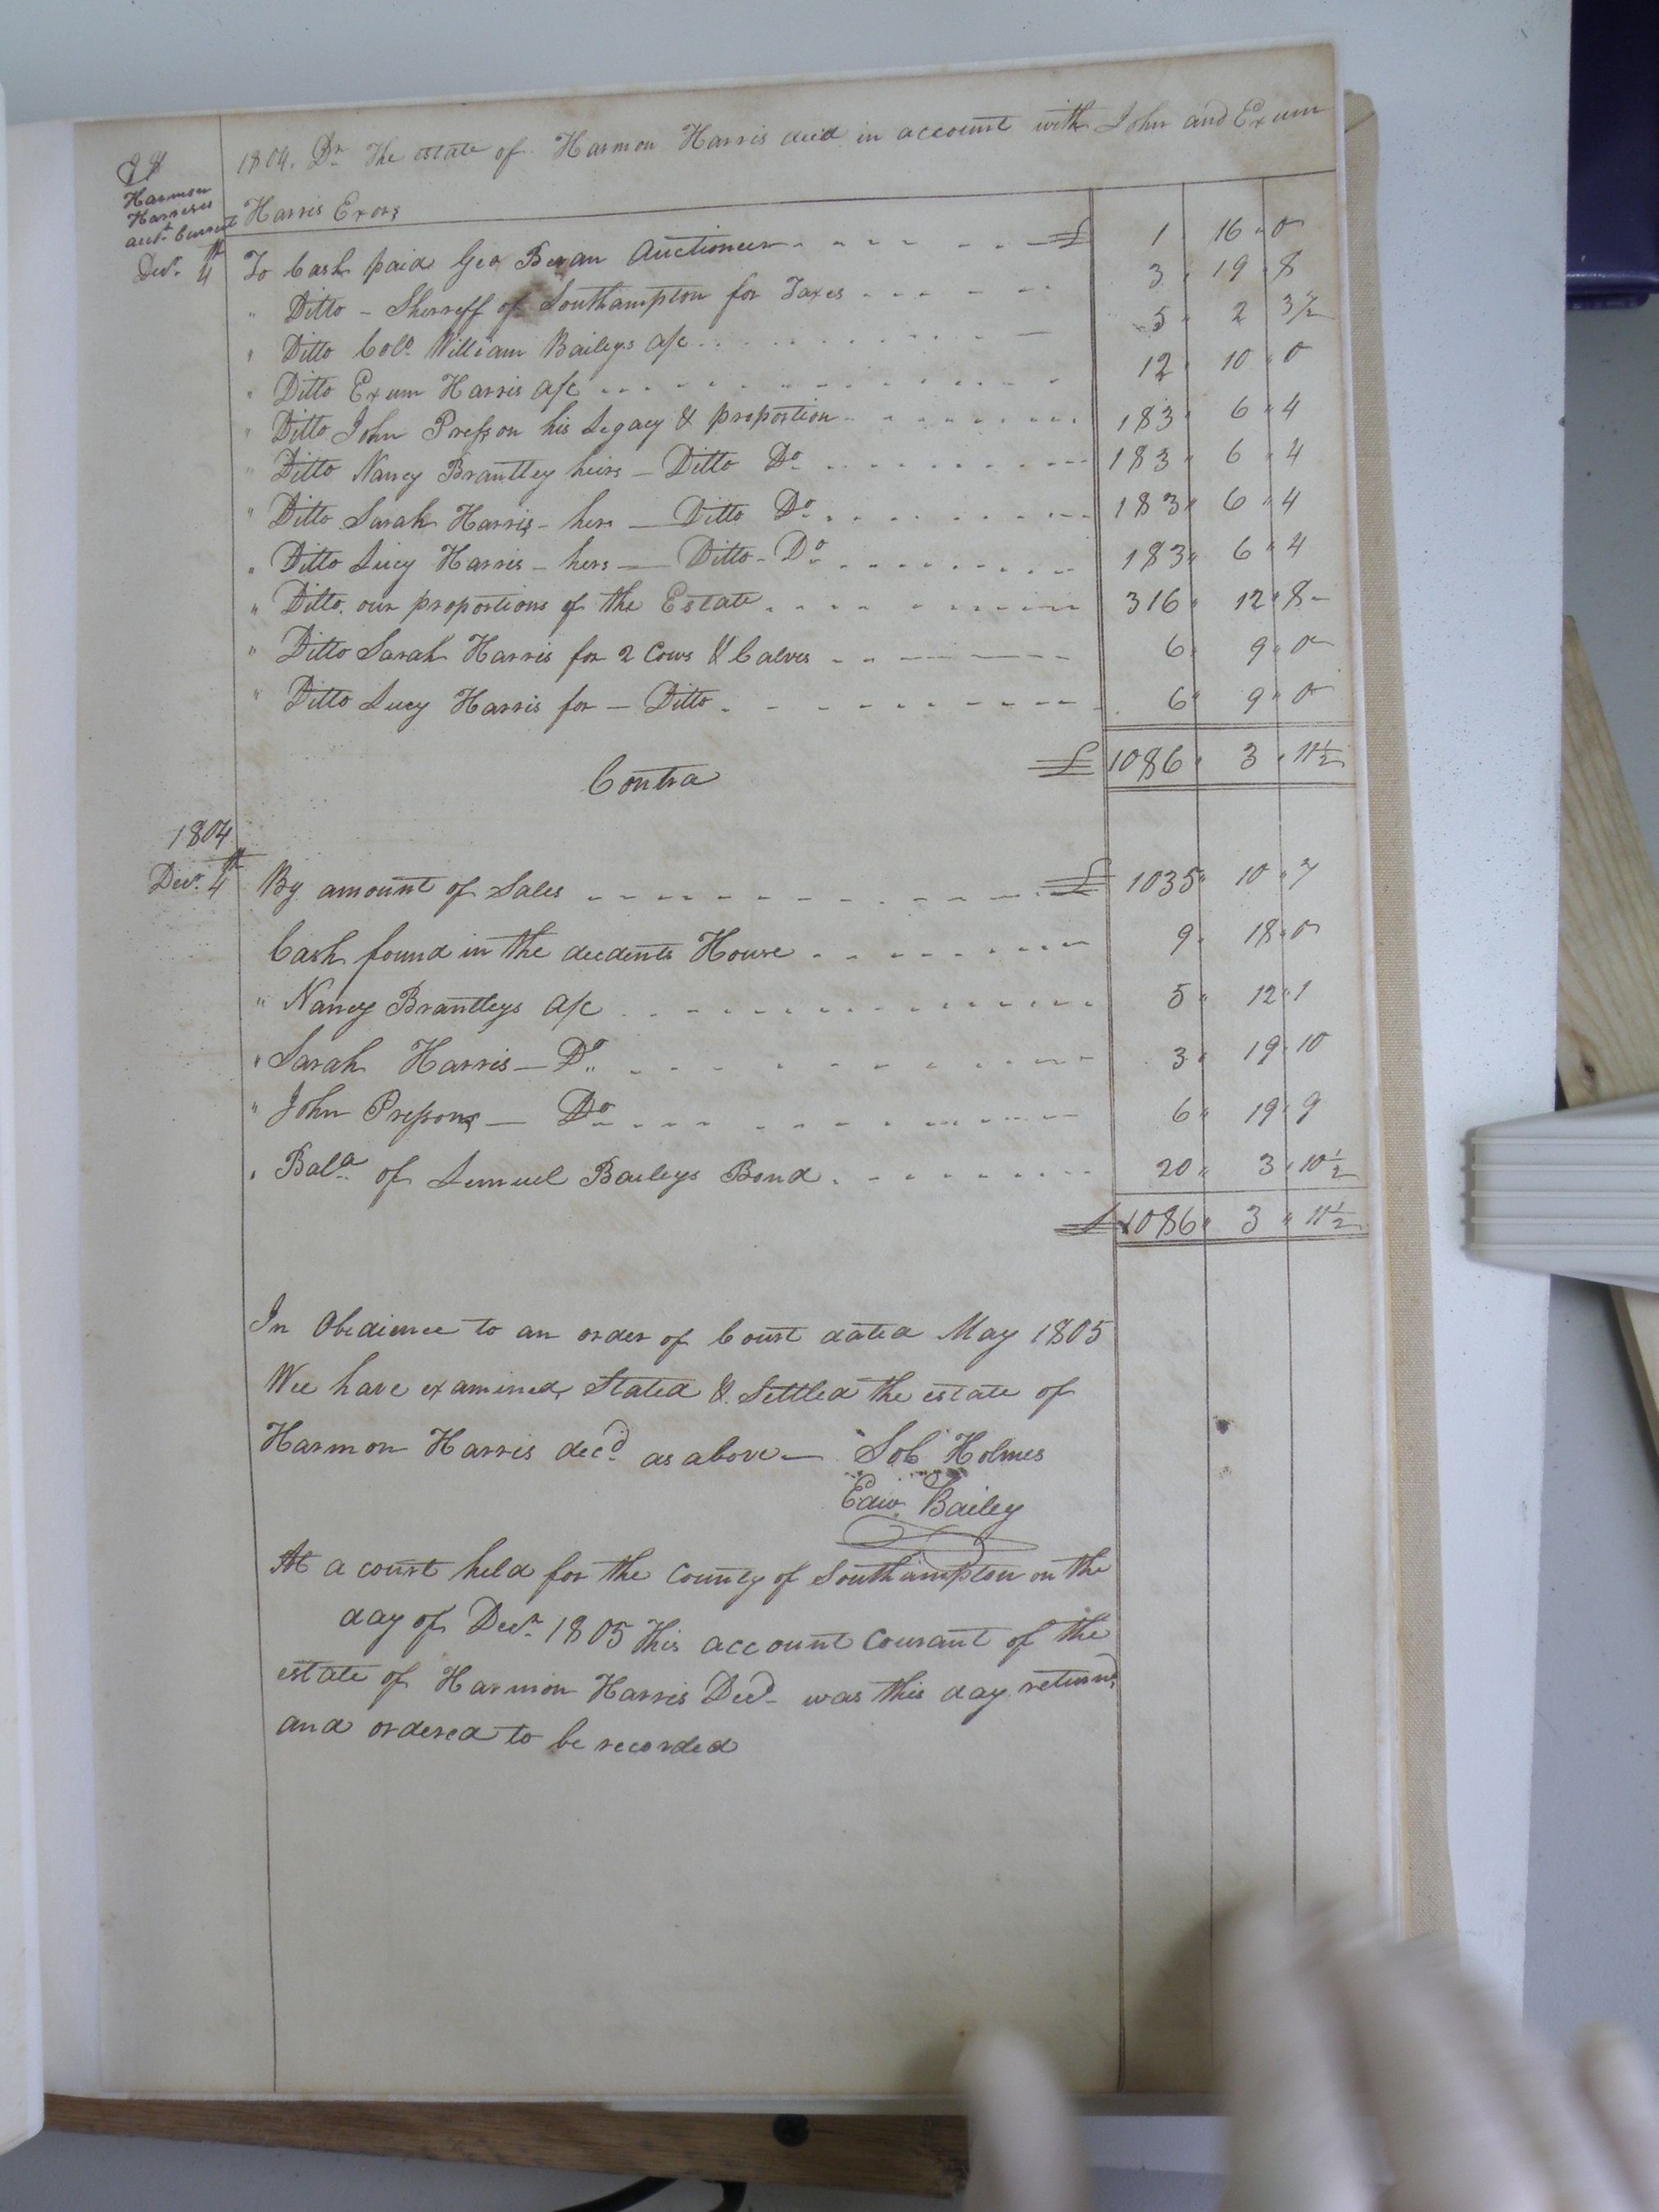 Harmon
Harrises
acct. Current
1804. Dr. The estate of Harmon Harris decd in account with John and Exum
Harris Exors
Decr. 4th To Cash paid Geo Bevan Auctioneer £ 1 16 0
" Ditto - Sherreff of Southampton for Taxes 3 19 8
" Ditto Colo. William Baileys a/c 5 2 3½
" Ditto Exum Harris a/c 12 10 0
" Ditto John Presson his Legacy & proportion 183 6 4
" Ditto Nancy Brantley heirs - Ditto Do 183 6 4
" Ditto Sarah Harris - hers - Ditto Do 183 6 4
" Ditto Lucy Harris - hers - Ditto - Do 183 6 4
" Ditto our proportions of the Estate 316 12 8
" Ditto Sarah Harris for 2 Cows & Calves 6 9 0
" Ditto Lucy Harris for - Ditto 6 9 0
£ 1086 3 11½
Contra
1804
Decr. 4th By amount of Sales £ 1035 10 7
Cash found in the decdents House 9 18 0
" Nancy Brantleys a/c 5 12 1
" Sarah Harris - Do 3 19 10
" John Pressons - Do 6 19 9
" Bala. of Lemuel Baileys Bond 20 3 10½
£ 1086 3 11½
In Obedience to an order of Court dated May 1805
Wee have examined, Stated & Settled the estate of
Harmon Harris decd. as above - Sol Holmes
Edw. Bailey
At a court held for the County of Southampton on the
day of Decr. 1805 This account Courant of the
estate of Harmon Harris Decd. was this day returnd
and ordered to be recorded